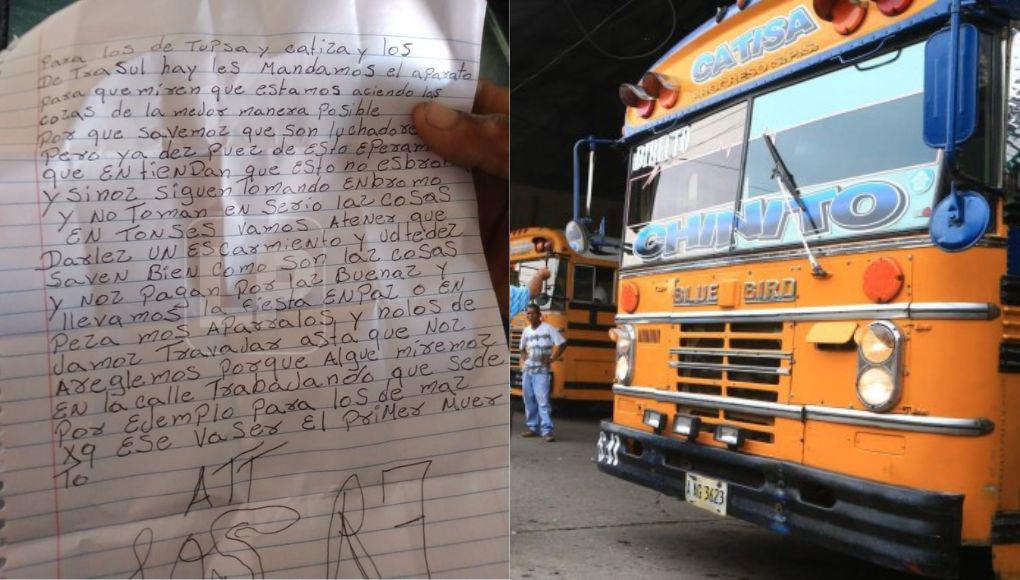 Para los de Tupsa y catiza y los
De Tra Sul hay les Mandamos el aparato
para que miren que estamos aciendo las
cozas de la medor manera Posible
Por que savemoz que son luchadore
Pero ya dez Puez de Esto Eperam
que ENtienDan que Esto no esbro
y sinoz siguen Tomando ENbromo
y No Toman en Serio laz cosas
EN TonSes Vamos Atener que
Darlez UN EScarmiento y udtedez
Saven Bien como Son laz cosas
y Noz Pagan Por laz Buenaz y
llevamos la fiesta ENPaz o EN
Peza mos AParralos y nolos de
Jamoz Travajar asta que Noz
Areglemos Porque Alque miremoz
EN la calle Trabajando que Sede
Por Ejemplo Para los de maz
xq ESE VaSer El PriMer Muer
To
ATT
Los R7
CATISA
PROGRESO-SPS
DIRECTO
CHINITO
BLUE BIRD
AAG 3623